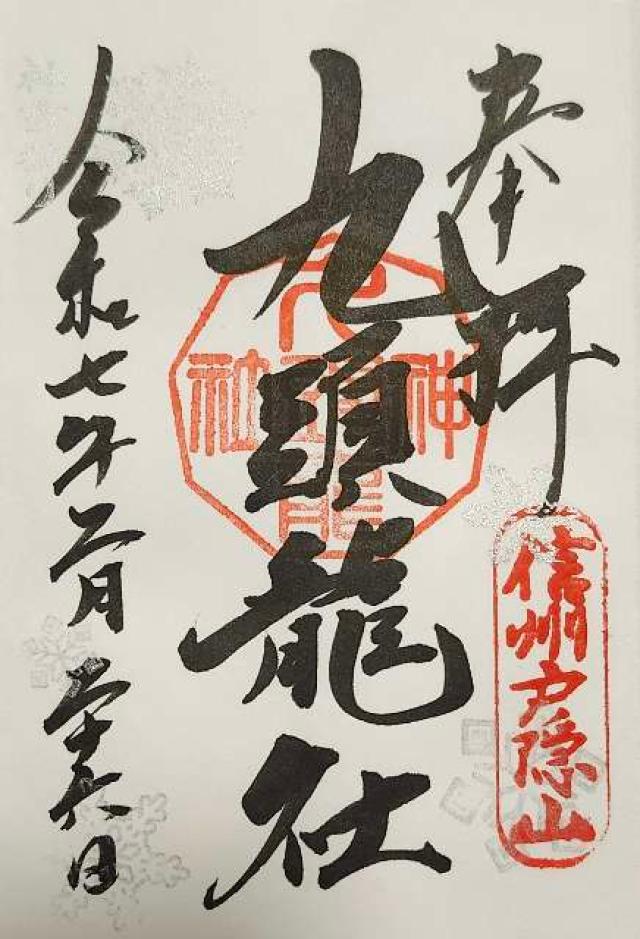 奉拝
信州戸隠山
九頭龍社
九頭龍神社
令和七年二月